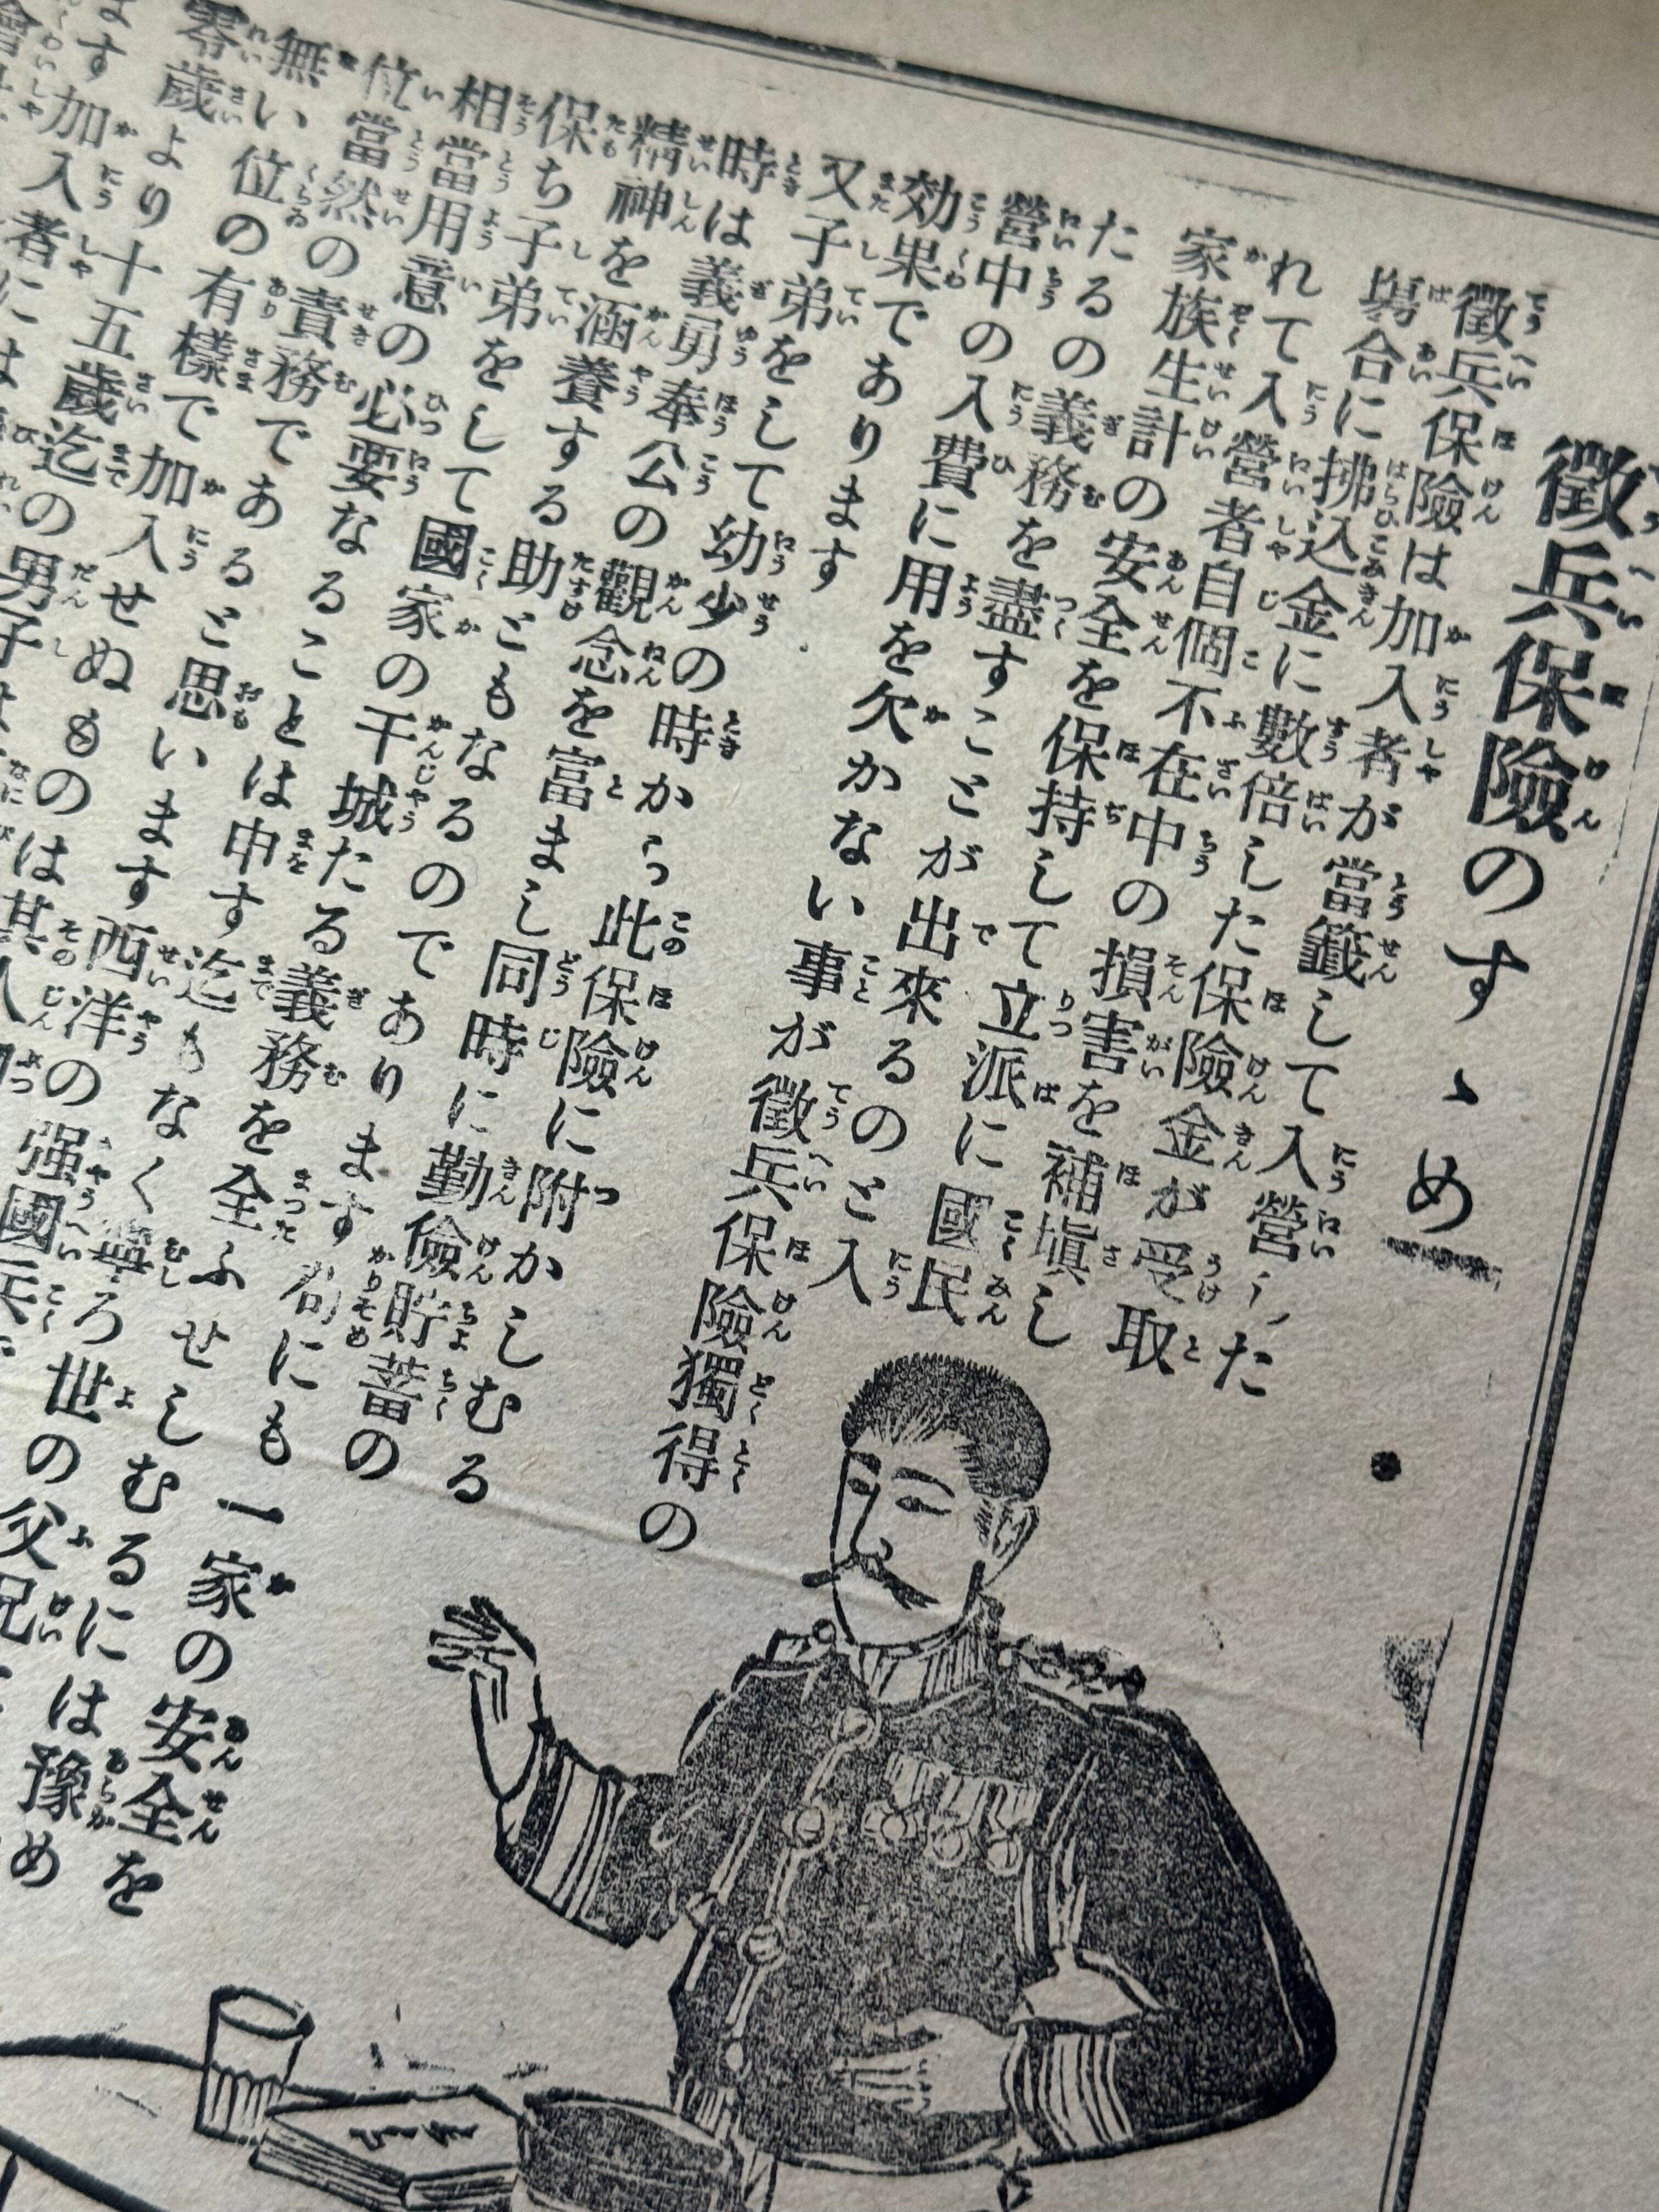 徵兵保險のすゝめ
徵兵保險は加入者が當籤して入營した
塲合に拂込金に數倍した保險金が受取
れて入營者自個不在中の損害を補塡し
家族生計の安全を保持して立派に國民
たるの義務を盡すことが出來るのと入
營中の入費に用を欠かない事が徵兵保險獨得の
効果であります
又子弟をして幼少の時から此保險に附かしむる
時は義勇奉公の觀念を富まし同時に勤儉貯蓄の
精神を涵養する助ともなるのであります
保ち子弟をして國家の干城たる義務を全ふせしむるには豫め
相當用意の必要なることは申す迄もなく寧ろ世の父兄
位當然の責務であると思います西洋の强國
無い位の有樣で加入せぬものは其
零歲より十五歲迄の男子
ます加入者には